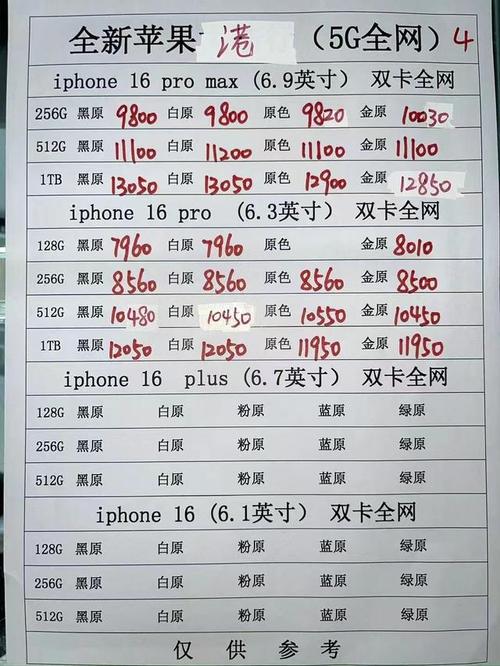 全新苹果 港 （5G全网）4
iphone 16 pro max (6.9英寸) 双卡全网
256G 黑原 9800 白原 9800 原色 9820 金原 10030
512G 黑原 11100 白原 11200 原色 11100 金原 11100
1TB 黑原 13050 白原 13050 原色 12900 金原 12850
iphone 16 pro (6.3英寸) 双卡全网
128G 黑原 7960 白原 7960 原色 金原 8010
256G 黑原 8560 白原 8560 原色 8560 金原 8500
512G 黑原 10480 白原 10450 原色 10550 金原 10450
1TB 黑原 12050 白原 12050 原色 11950 金原 11950
iphone 16 plus (6.7英寸) 双卡全网
128G 黑原 白原 粉原 蓝原 绿原
256G 黑原 白原 粉原 蓝原 绿原
512G 黑原 白原 粉原 蓝原 绿原
iphone 16 (6.1英寸) 双卡全网
128G 黑原 白原 粉原 蓝原 绿原
256G 黑原 白原 粉原 蓝原 绿原
512G 黑原 白原 粉原 蓝原 绿原
仅供参考